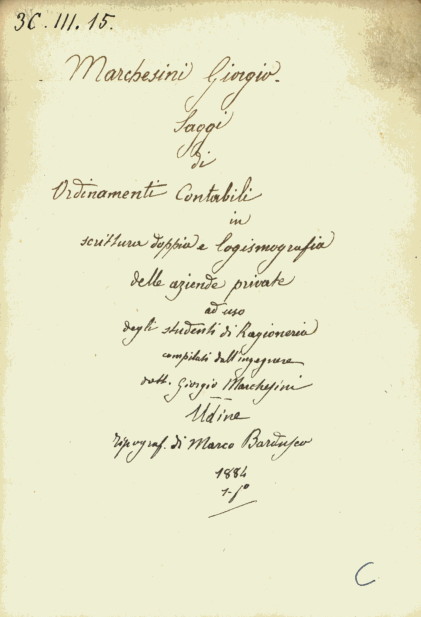 3C. III. 15.
Marchesini Giorgio.
Saggi
di
Ordinamenti Contabili
in
scrittura doppia e logismografia
delle aziende private
ad uso
degli studenti di Ragioneria
compilati dall'ingegnere
dott. Giorgio Marchesini
Udine
tipograf. di Marco Bardusco
1884
C